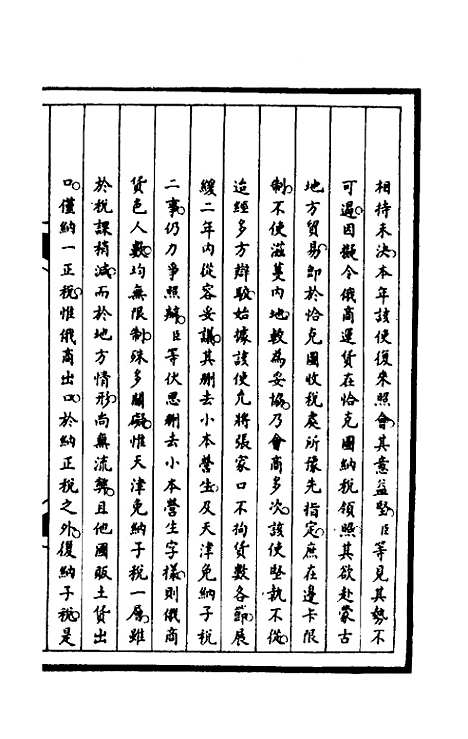 相持未決本年該使復來照會其意益堅臣等見其勢不
可遏因擬令俄商運貨在恰克圖納稅領照其欲赴蒙古
地方貿易即於恰克圖收稅處所豫先指定庶在邊卡限
制不使滋蔓內地較為妥協乃會商多次該使堅執不從
迨經多方辯駁始據該使允將張家口不拘貨數各節展
緩二年內從容妥議其刪去小本營生及天津免納子稅
二事仍力爭照辦臣等伏思刪去小本營生字樣則俄商
貨色人數均無限制殊多關礙惟天津免納子稅一層雖
於稅課稍減而於地方情形尚無流弊且他國販土貨出
口僅納一正稅惟俄商出口於納正稅之外復納子稅是